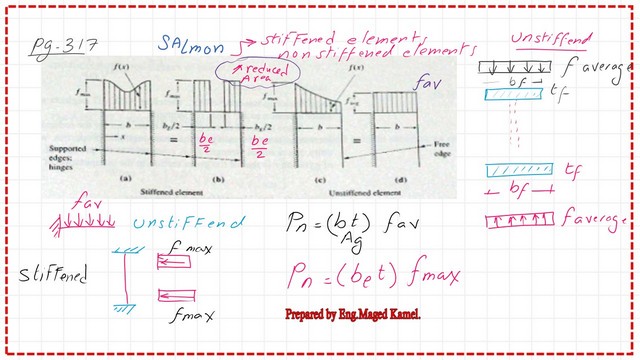 Pg-317
SAlmon
stiffened elements
non stiffened elements
unstiffend
reduced
Area
f(x)
f(x)
fav
f average
bf
tf
fmax
fmax
b
x
be/2
be/2
b
b
be/2
be/2
=
=
Supported
edges;
hinges
Free
edge
(a)
(b)
(c)
(d)
Stiffened element
Unstiffened element
tf
bf
f average
fav
unstiffend
Pn = (bt) fav
Ag
stiffened
f max
fmax
Pn = (bet) fmax
Prepared by Eng.Maged Kamel.